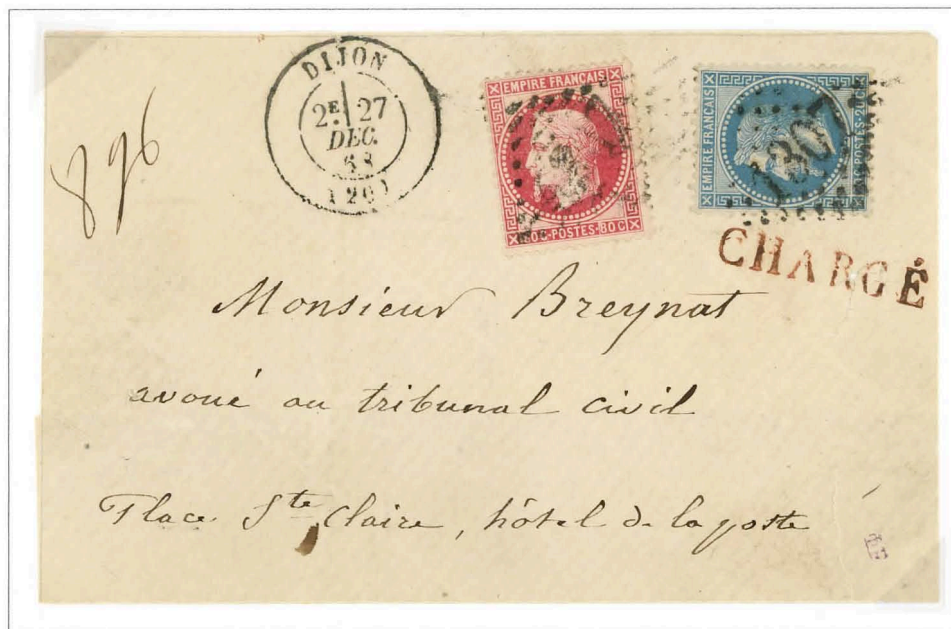 DIJON
2E 27
DEC.
68
(20)
896
EMPIRE FRANÇAIS
80C·POSTES·80C
EMPIRE FRANÇAIS
20C·POSTES·20C
CHARGÉ
Monsieur Breynat
avoué au tribunal civil
Place Ste Claire, hôtel de la poste